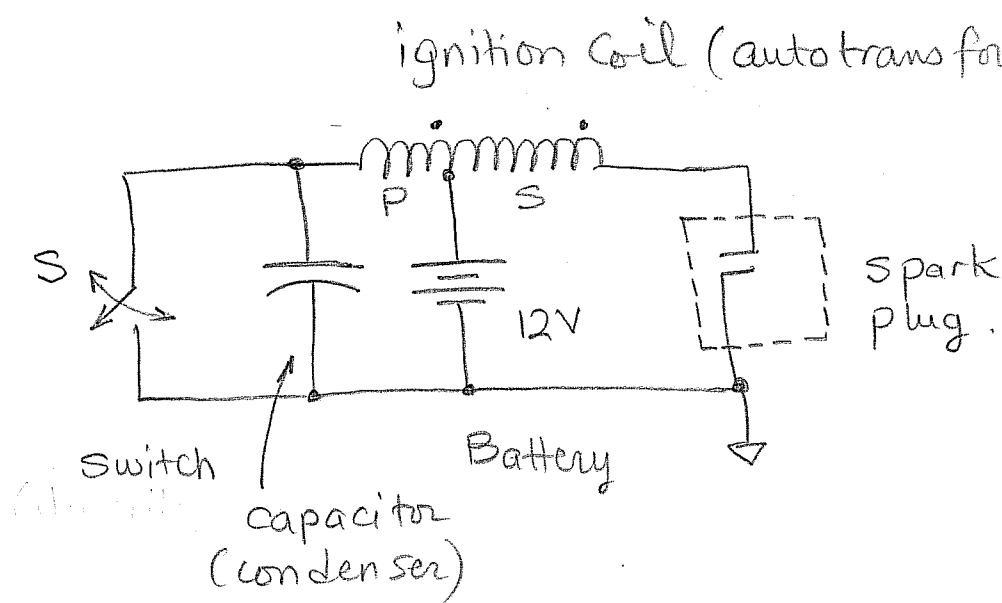 ignition coil (autotransfor
P
S
S
spark
plug.
12V
switch
Battery
capacitor
(condenser)